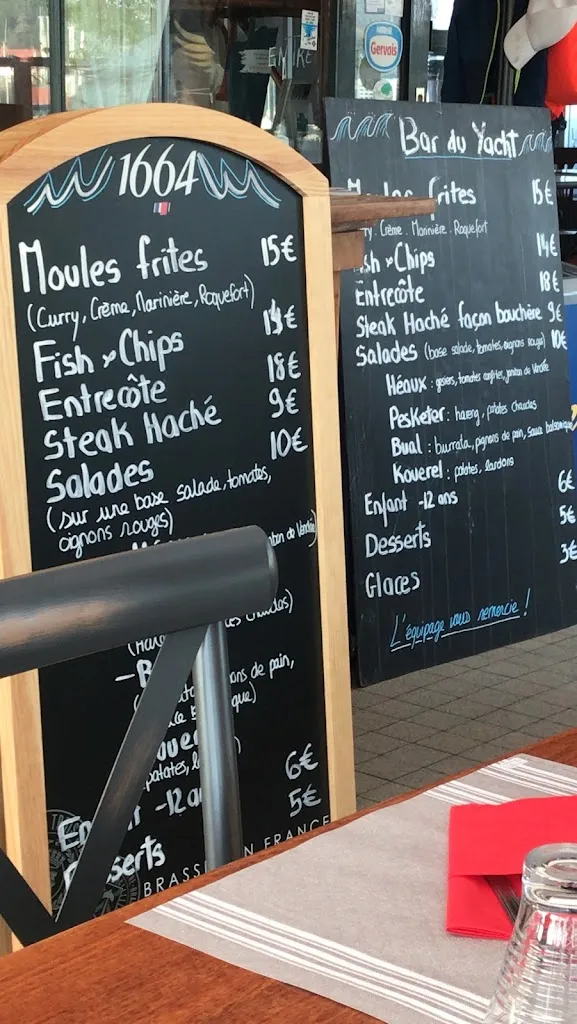 Gervais
1664
Moules frites 15€
(Curry, Crème, Marinière, Roquefort)
Fish & Chips 14€
Entrecôte 18€
Steak Haché 9€
Salades 10€
(sur une base salade, tomates,
oignons rouges)
ans de pain,
patates,
6€
-12 ans
5€
BRASS N FRANCE
Bar du Yacht
Moules frites 15€
Crème, Marinière, Roquefort
Fish & Chips 14€
Entrecôte 18€
Steak Haché façon bouchère 9€
Salades (base salade, tomates, oignons rouges) 10€
Héaux : gésiers, tomates confites, jambon de Vendée
Pesketer : hareng, patates chaudes
Bual : burrata, pignons de pain, sauce balsamique
Kouerel : patates, lardons
Enfant -12 ans 6€
Desserts 5€
Glaces 3€
L'équipage vous remercie !